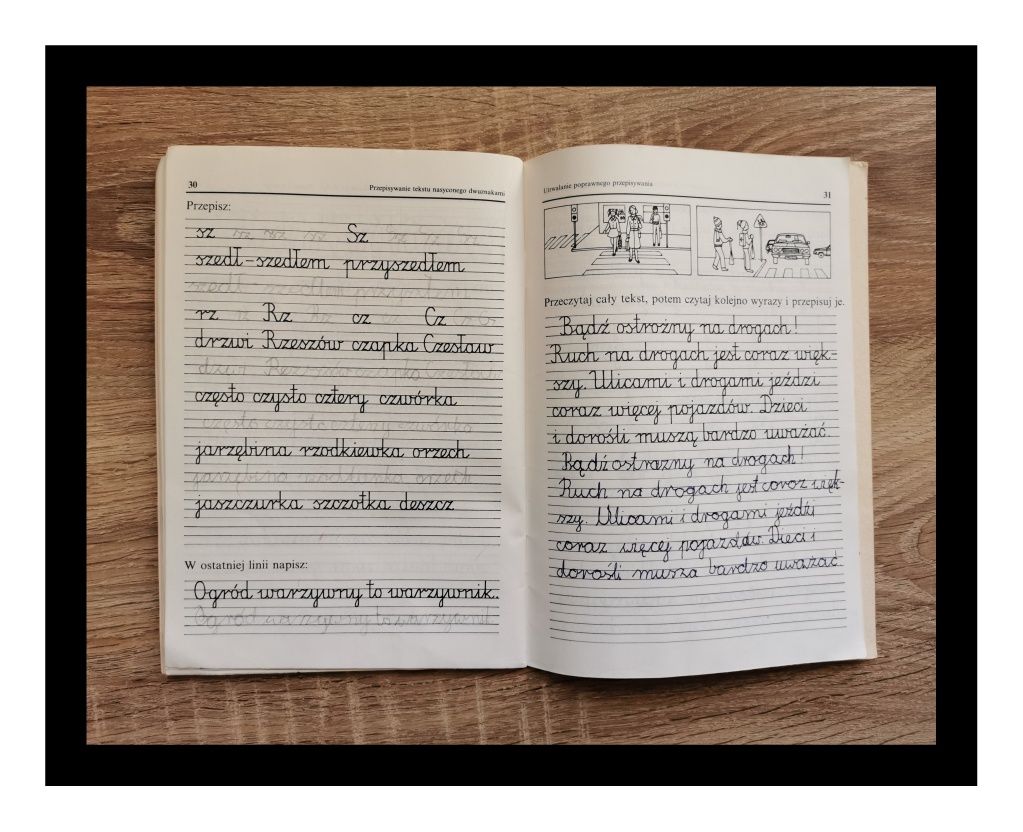 30
Przepisywanie tekstu nasyconego dwuznakami
Przepisz:
sz sz sz sz Sz sz Sz
szedł-szedłem przyszedłem
szedł szedłem przyszłem
rz rz Rz Rz cz cz Cz Cz Cz
drzwi Rzeszów czapka Czesław
dzwi Rzeszów czapka Czesław
często czysto cztery czwórka
często czysto cztery czwórka
jarzębina rzodkiewka orzech
jarzębina orzech
jaszczurka szczotka deszcz
W ostatniej linii napisz:
Ogród warzywny to warzywnik.
Ogród warzywny to warzywnik
Utrwalanie poprawnego przepisywania
31
Przeczytaj cały tekst, potem czytaj kolejno wyrazy i przepisuj je.
Bądź ostrożny na drogach!
Ruch na drogach jest coraz więk-
szy. Ulicami i drogami jeździ
coraz więcej pojazdów. Dzieci
i dorośli muszą bardzo uważać.
Bądź ostrazny na drogach!
Ruch na drogach jest coroz więk-
szy. Ulicami i drogami jeździ
coraz więcej pojazdów. Dieci i
dorośli musza bardzo uważać